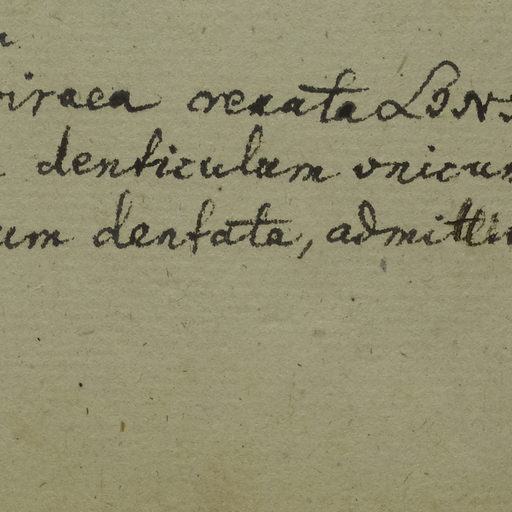 iraea crenata LINN
denticulum unicum
um dentata, admittu